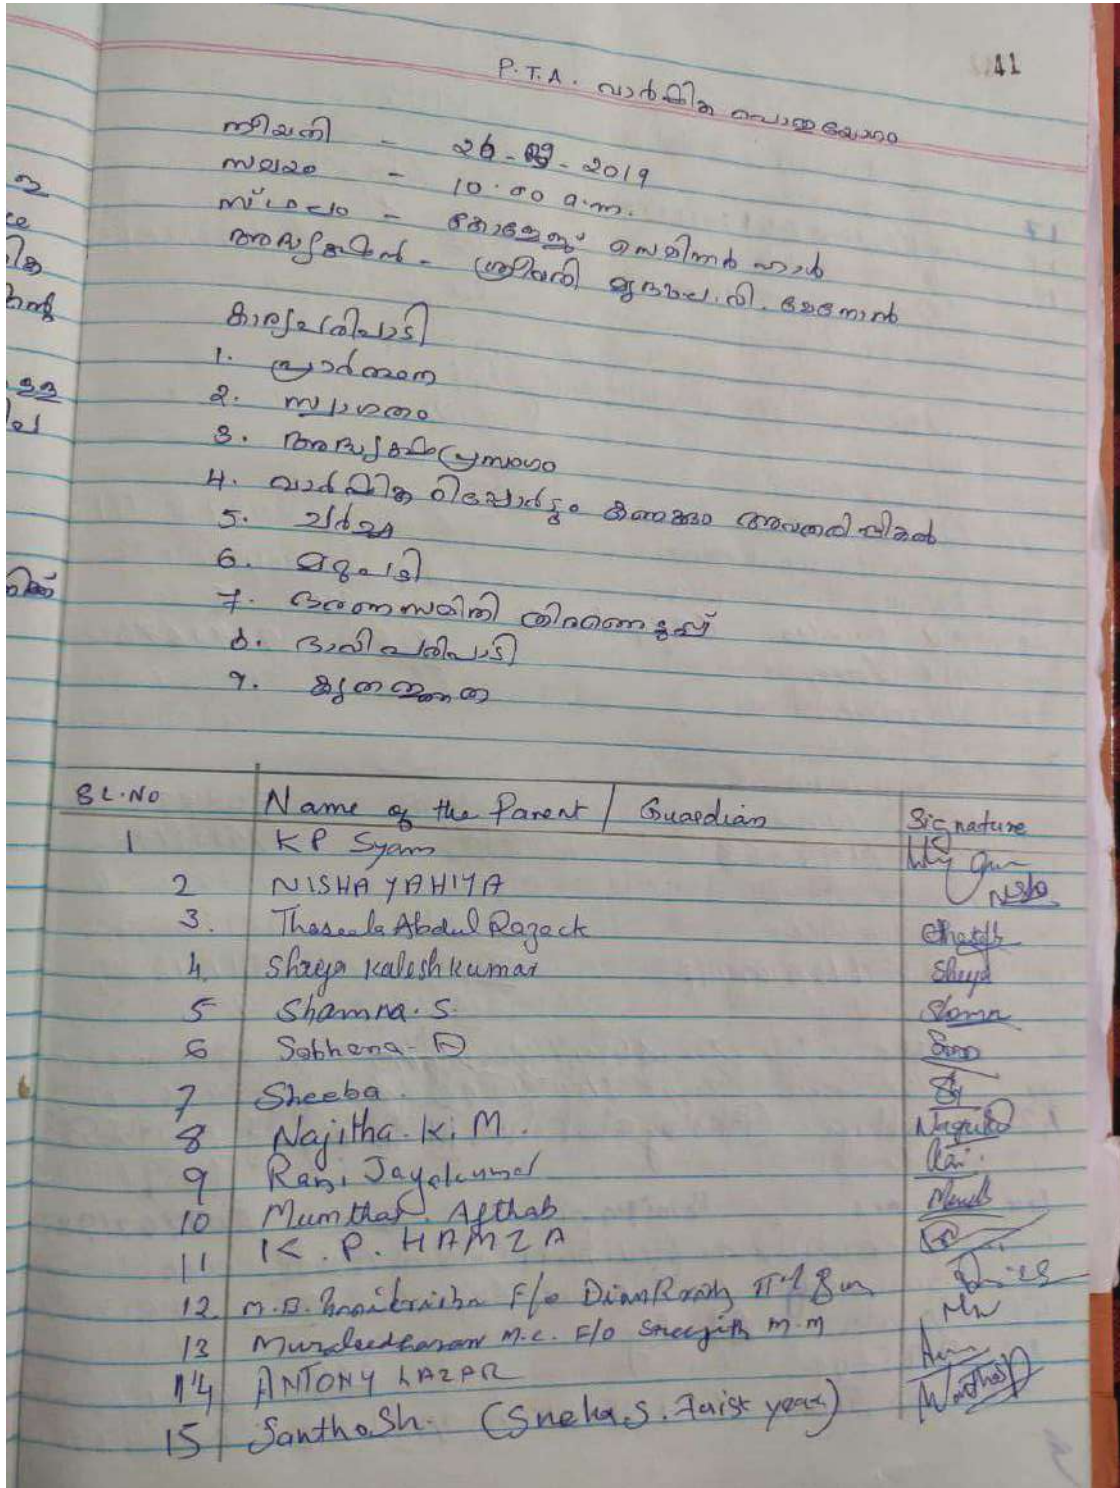 41
P.T.A. വാർഷിക പൊതുയോഗം
തീയതി - 26 - - 2019
സമയം - 10.00 a.m.
സ്ഥലം - കോളേജ് സെമിനർ ഹാൾ
അദ്ധ്യക്ഷൻ - ശ്രീമതി മൃദുല. വി. മേനോൻ
കാര്യപരിപാടി
1. പ്രാർത്ഥന
2. സ്വാഗതം
3. അദ്ധ്യക്ഷപ്രസംഗം
4. വാർഷിക റിപ്പോർട്ടും കണക്കും അവതരിപ്പിക്കൽ
5. ചർച്ച
6. മറുപടി
7. ഭരണസമിതി തിരഞ്ഞെടുപ്പ്
8. ഭാവി പരിപാടി
9. കൃതജ്ഞത
SL.NO Name of the Parent / Guardian Signature
1 K P Syam
2 NISHA YAHIYA Nisha
3. Thaseela Abdul Razack
4. Shreya Kaleshkumar Sheya
5 Shamna. S.
6 Sobhana - D
7 Sheeba.
8 Najitha. K. M.
9 Rani Jayakumar
10 Mumthas Afthab
11 K. P. HAMZA
12. M.B. F/o
13 Muraleedharan M.C. F/o Sreejith M.M
14 ANTONY LAZAR
15 Santhosh. (Sneha S. Faist year)